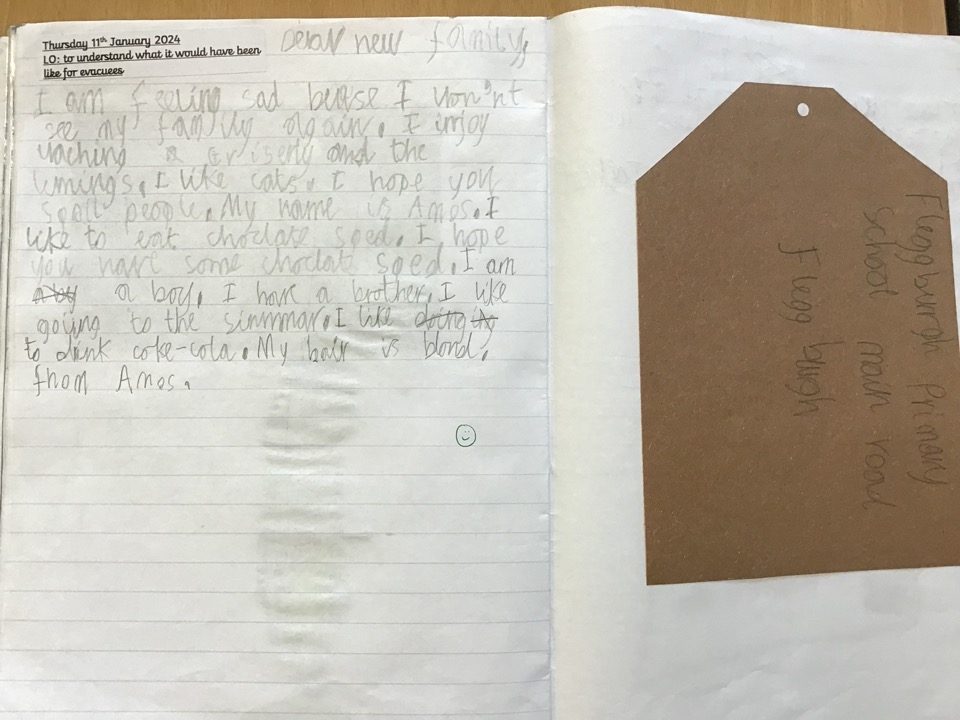 Thursday 11th January 2024
LO: to understand what it would have been
like for evacuees
Dear new family,
I am feeling sad because I won'nt
see my family again. I injoy
waching a and the
lemings. I like cats. I hope you
spoil people. My name is Amos. I
like to eat choclate sped. I hope
you have some choclate sped. I am
a boy a boy. I have a brother. I like
going to the simmar. I like
to dink coke-cola. My hair is blond.
from Amos.
Fleggburgh Primary
school main road
Flegg burgh